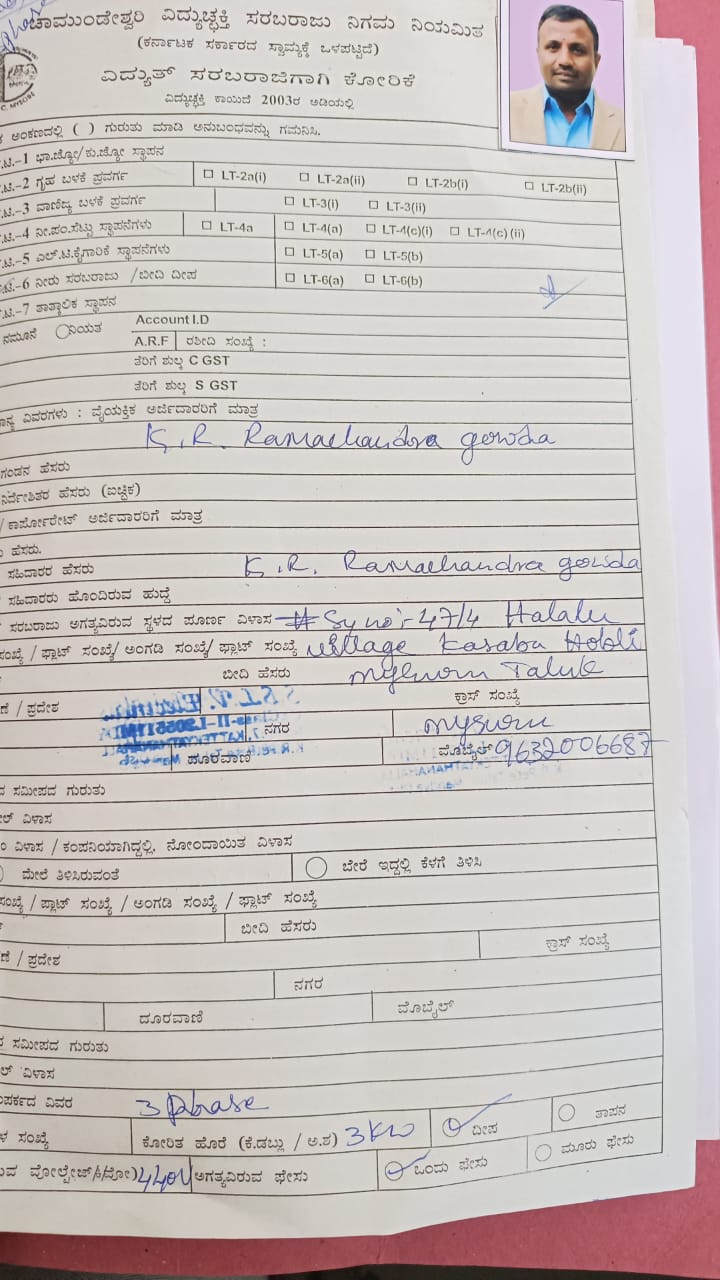 ಚಾಮುಂಡೇಶ್ವರಿ ವಿದ್ಯುಚ್ಛಕ್ತಿ ಸರಬರಾಜು ನಿಗಮ ನಿಯಮಿತ
(ಕರ್ನಾಟಕ ಸರ್ಕಾರದ ಸ್ವಾಮ್ಯಕ್ಕೆ ಒಳಪಟ್ಟಿದೆ)
ವಿದ್ಯುತ್ ಸರಬರಾಜಿಗಾಗಿ ಕೋರಿಕೆ
ವಿದ್ಯುಚ್ಛಕ್ತಿ ಕಾಯಿದೆ 2003ರ ಅಡಿಯಲ್ಲಿ
ಅಂಕಣದಲ್ಲಿ ( ) ಗುರುತು ಮಾಡಿ ಅನುಬಂಧವನ್ನು ಗಮನಿಸಿ.
.ಟಿ.-1 ಭಾ.ಜ್ಯೋ/ಕು.ಜ್ಯೋ ಸ್ಥಾಪನ
.ಟಿ.-2 ಗೃಹ ಬಳಕೆ ಪ್ರವರ್ಗ LT-2a(i) LT-2a(ii) LT-2b(i) LT-2b(ii)
.ಟಿ.-3 ವಾಣಿಜ್ಯ ಬಳಕೆ ಪ್ರವರ್ಗ LT-3(i) LT-3(ii)
.ಟಿ.-4 ನೀ.ಪಂ.ಸೆಟ್ಟು ಸ್ಥಾಪನೆಗಳು LT-4a LT-4(a) LT-4(c)(i) LT-4(c) (ii)
.ಟಿ.-5 ಎಲ್.ಟಿ.ಕೈಗಾರಿಕೆ ಸ್ಥಾಪನೆಗಳು LT-5(a) LT-5(b)
.ಟಿ.-6 ನೀರು ಸರಬರಾಜು /ಬೀದಿ ದೀಪ LT-6(a) LT-6(b)
.ಟಿ.-7 ತಾತ್ಕಾಲಿಕ ಸ್ಥಾಪನ
ನಮೂನೆ ನಿಯತ Account I.D
A.R.F ರಶೀದಿ ಸಂಖ್ಯೆ :
ತೆರಿಗೆ ಶುಲ್ಕ C GST
ತೆರಿಗೆ ಶುಲ್ಕ S GST
ವಿವರಗಳು : ವೈಯಕ್ತಿಕ ಅರ್ಜಿದಾರರಿಗೆ ಮಾತ್ರ
K.R. Ramachandra gowda
ಗಂಡನ ಹೆಸರು
ನಿರ್ದೇಶಿತರ ಹೆಸರು (ಐಚ್ಛಿಕ)
/ ಕಾರ್ಪೋರೇಟ್ ಅರ್ಜಿದಾರರಿಗೆ ಮಾತ್ರ
ಹೆಸರು.
ಸಹಿದಾರರ ಹೆಸರು K.R. Ramachandra gowda
ಸಹಿದಾರರು ಹೊಂದಿರುವ ಹುದ್ದೆ
ಸರಬರಾಜು ಅಗತ್ಯವಿರುವ ಸ್ಥಳದ ಪೂರ್ಣ ವಿಳಾಸ # Sy no:- 47/4 Halalu
ಸಂಖ್ಯೆ / ಫ್ಲಾಟ್ ಸಂಖ್ಯೆ/ ಅಂಗಡಿ ಸಂಖ್ಯೆ/ ಫ್ಲಾಟ್ ಸಂಖ್ಯೆ village Kasaba Hobli
ಬೀದಿ ಹೆಸರು mysuru Taluk
/ ಪ್ರದೇಶ ಕ್ರಾಸ್ ಸಂಖ್ಯೆ
ನಗರ mysuru
ದೂರವಾಣಿ ಮೊಬೈಲ್ 9632006687
ಸಮೀಪದ ಗುರುತು
ವಿಳಾಸ
ವಿಳಾಸ / ಕಂಪನಿಯಾಗಿದ್ದಲ್ಲಿ, ನೋಂದಾಯಿತ ವಿಳಾಸ
ಮೇಲೆ ತಿಳಿಸಿರುವಂತೆ ಬೇರೆ ಇದ್ದಲ್ಲಿ ಕೆಳಗೆ ತಿಳಿಸಿ
ಸಂಖ್ಯೆ / ಪ್ಲಾಟ್ ಸಂಖ್ಯೆ / ಅಂಗಡಿ ಸಂಖ್ಯೆ / ಫ್ಲಾಟ್ ಸಂಖ್ಯೆ
ಬೀದಿ ಹೆಸರು
/ ಪ್ರದೇಶ ಕ್ರಾಸ್ ಸಂಖ್ಯೆ
ನಗರ
ದೂರವಾಣಿ ಮೊಬೈಲ್
ಸಮೀಪದ ಗುರುತು
ವಿಳಾಸ
ವಿವರ 3 phase
ಸಂಖ್ಯೆ ಕೋರಿತ ಹೊರೆ (ಕೆ.ಡಬ್ಲು / ಅ.ಶ) 3 KW ದೀಪ ತಾಪನ
ವೋಲ್ಟೇಜ್ 440V ಅಗತ್ಯವಿರುವ ಫೇಸು ಒಂದು ಫೇಸು ಮೂರು ಫೇಸು